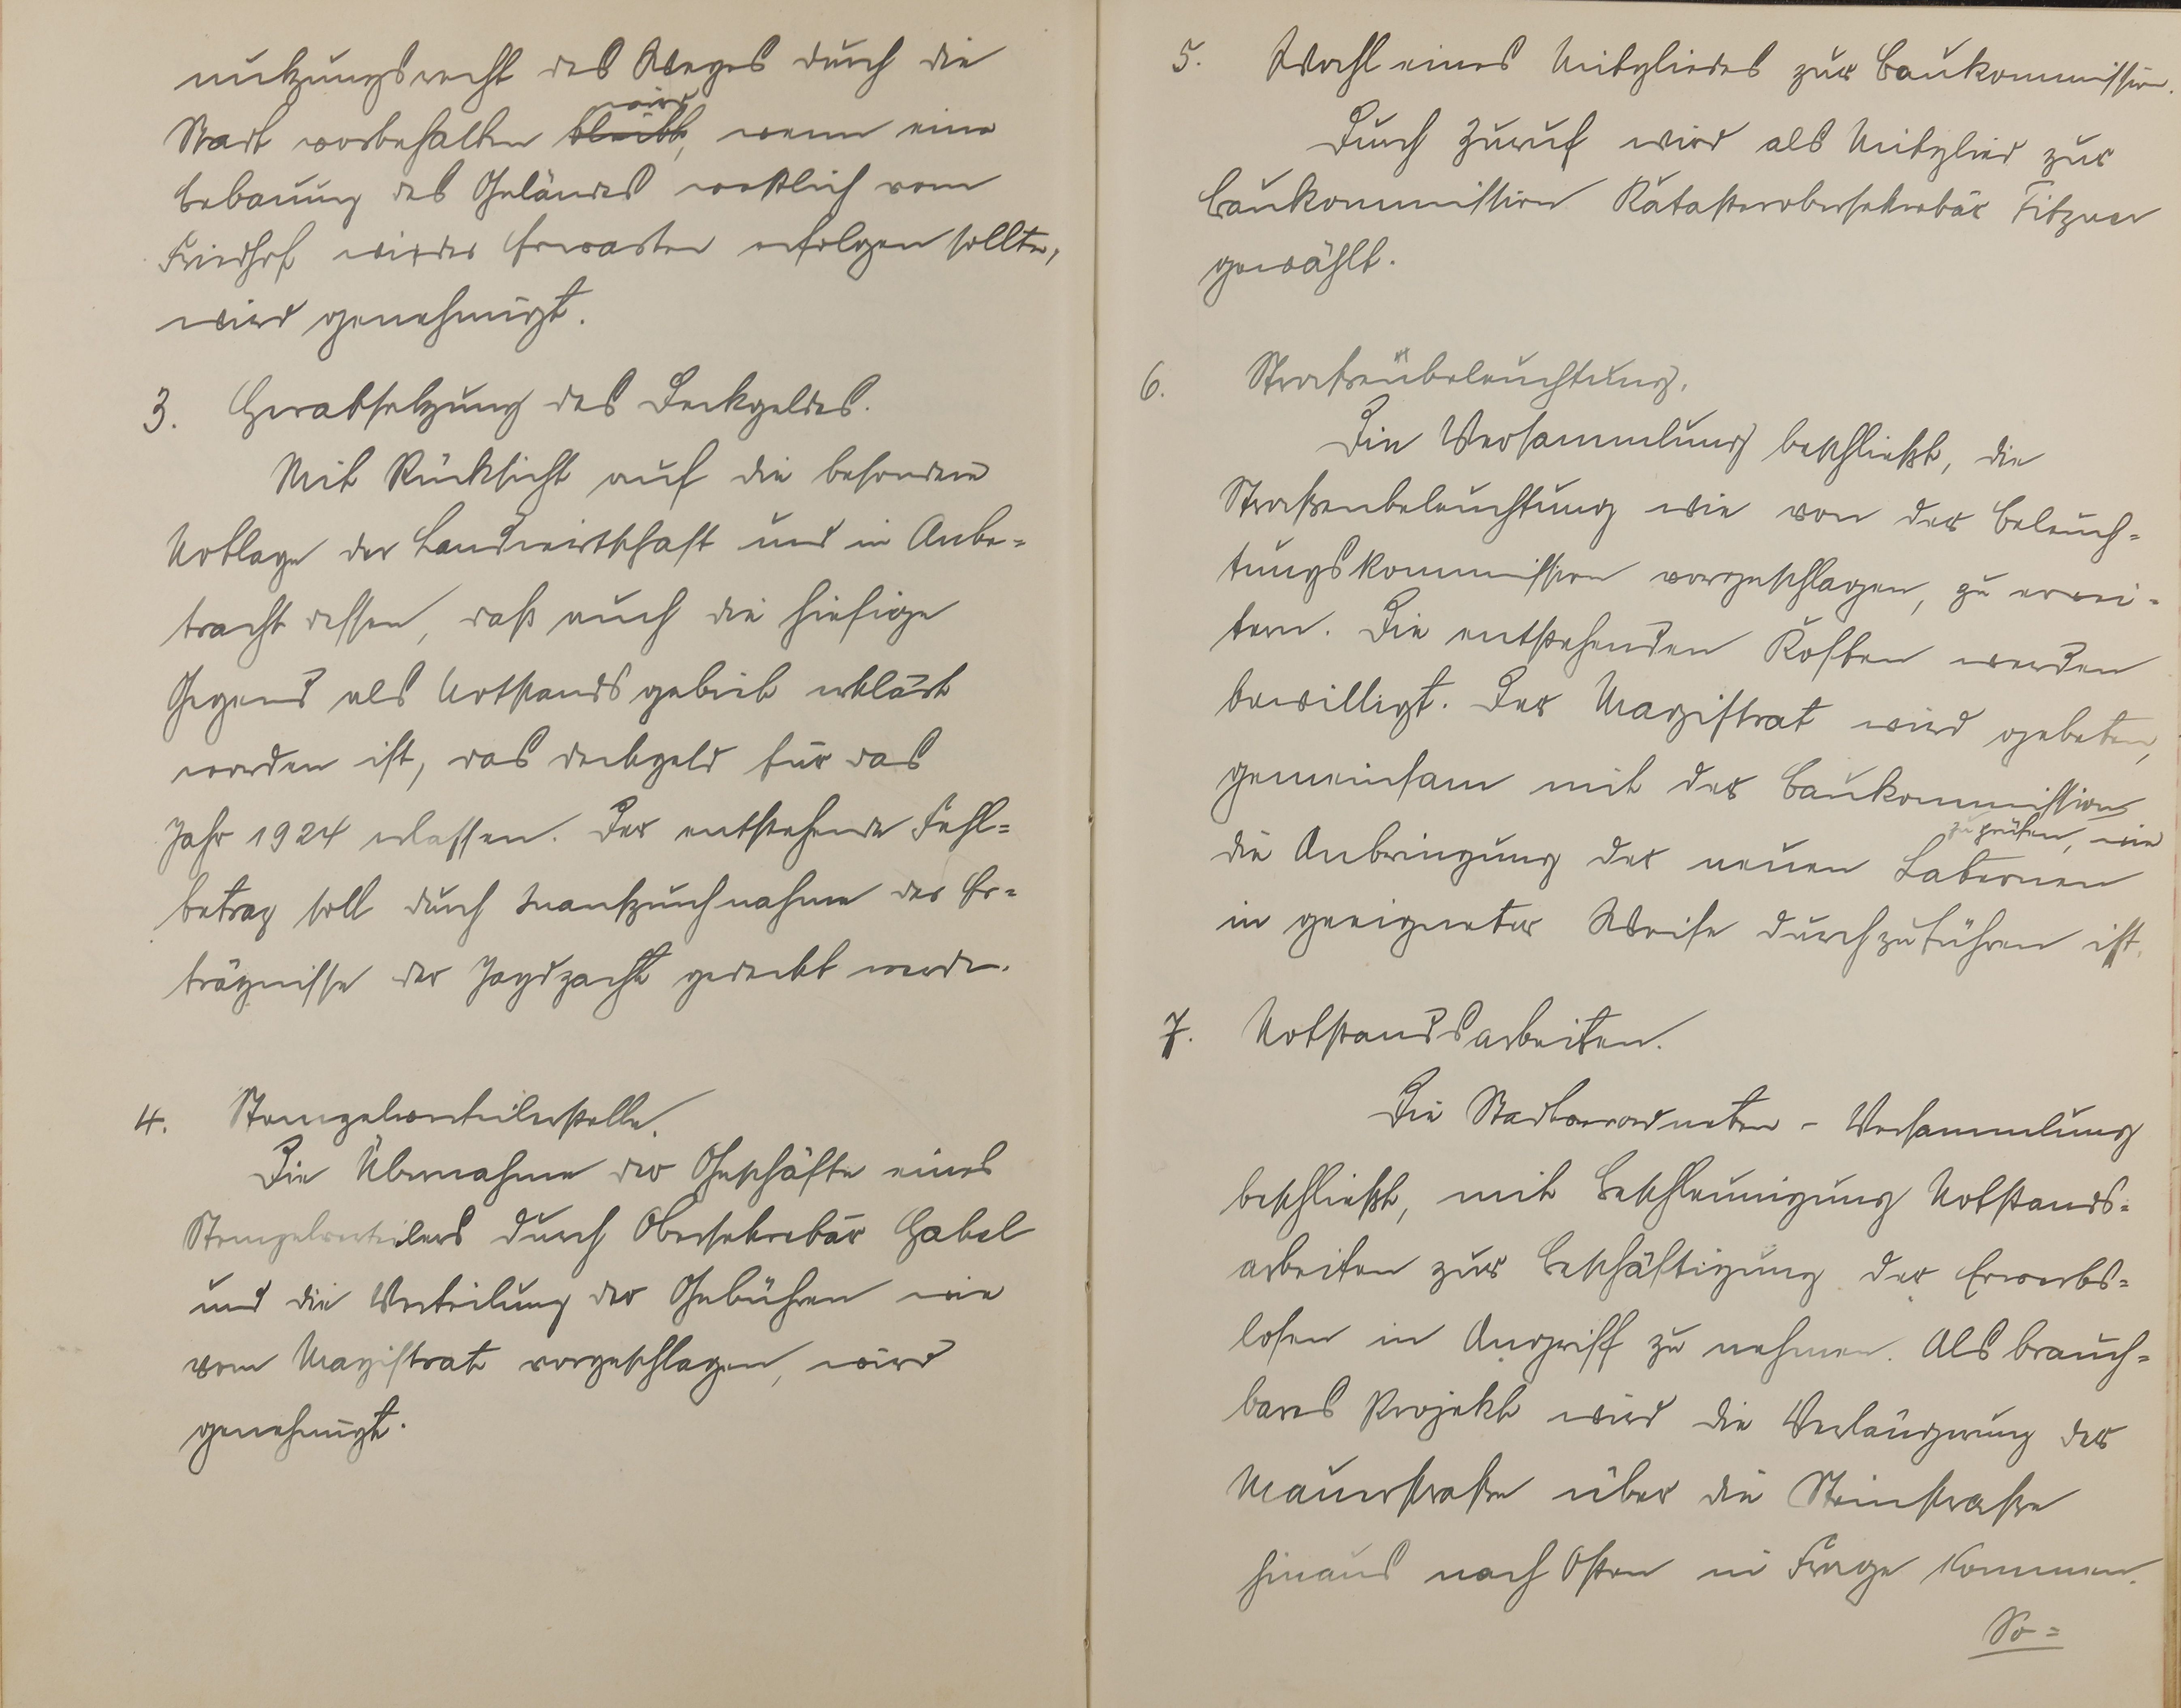 nutzungsrecht des Weges durch die
wird
Stadt vorbehalten bleibt, wenn eine
Bebauung des Geländes westlich vom
Friedhof wider Erwarten erfolgen sollte,
wird genehmigt.
3. Herabsetzung des Deckgeldes.
Mit Rücksicht auf die besondere
Notlage der Landwirtschaft und in Anbe=
tracht dessen, daß auch die hiesige
Gegend als Notstandsgebiet erklärt
worden ist, das Deckgeld für das
Jahr 1924 erlassen. Der entstehende Fehl=
betrag soll durch Inanspruchnahme der Er=
trägnisse der Jagdpacht gedeckt werden.
4. Stempelverteilerstelle.
Die Übernahme der Geschäfte eines
Stempelverteilers durch Obersekretär Habel
und die Verteilung der Gebühren wie
vom Magistrat vorgeschlagen, wird
genehmigt.
5. Wahl eines Mitgliedes zur Baukommission.
Durch Zuruf wird als Mitglied zur
Baukommission Katasterobersekretär Fitzner
gewählt.
6. Straßenbeleuchtung.
Die Versammlung beschließt, die
Straßenbeleuchtung wie von der Beleuch=
tungskommission vorgeschlagen, zu erwei=
tern. Die entstehenden Kosten werden
bewilligt. Der Magistrat wird gebeten,
gemeinsam mit der Baukommission
zu prüfen, wie
die Anbringung der neuen Laternen
in geeigneter Weise durchzuführen ist.
7. Notstandsarbeiten.
Die Stadtverordneten - Versammlung
beschließt, mit Beschleunigung Notstands=
arbeiten zur Beschäftigung der Erwerbs=
losen in Angriff zu nehmen. Als brauch=
bares Projekt wird die Verlängerung der
Mauerstraße über die Steinstraße
hinaus nach Osten in Frage kommen.
So=